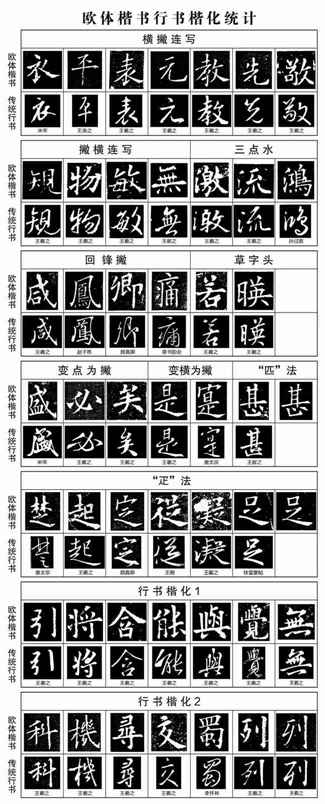 欧体楷书行书楷化统计
横撇连写
欧体楷书 衣 平 表 元 教 先 敬
传统行书 衣 平 表 元 教 先 敬
米芾 王羲之 王羲之 王羲之 王羲之 王羲之 王羲之
撇横连写 三点水
欧体楷书 規 物 敏 無 激 流 鴻
传统行书 規 物 敏 無 激 流 鴻
王羲之 王羲之 王羲之 王羲之 王羲之 王羲之 孙过庭
回锋撇 草字头
欧体楷书 咸 鳳 卿 痛 若 暎
传统行书 咸 鳳 卿 痛 若 暎
王羲之 赵子昂 颜真卿 王羲之 王羲之
变点为撇 变横为撇 “匹”法
欧体楷书 盛 必 矣 是 寔 甚 甚
传统行书 盛 必 矣 是 寔 甚
米芾 王羲之 王羲之 王羲之 唐太宗 王献之
“疋”法
欧体楷书 楚 起 定 從 足 足
传统行书 楚 起 定 從 凝 足
唐太宗 王羲之 颜真卿 王羲之
行书楷化1
欧体楷书 引 將 含 能 與 覺 無
传统行书 引 將 含 能 與 覺 無
王羲之 王羲之 王羲之 王羲之 王羲之 王羲之 王羲之
行书楷化2
欧体楷书 科 機 尋 交 蜀 列 列
传统行书 科 機 尋 交 蜀 列 列
王羲之 王羲之 王羲之 王羲之 李怀琳 王羲之 王羲之